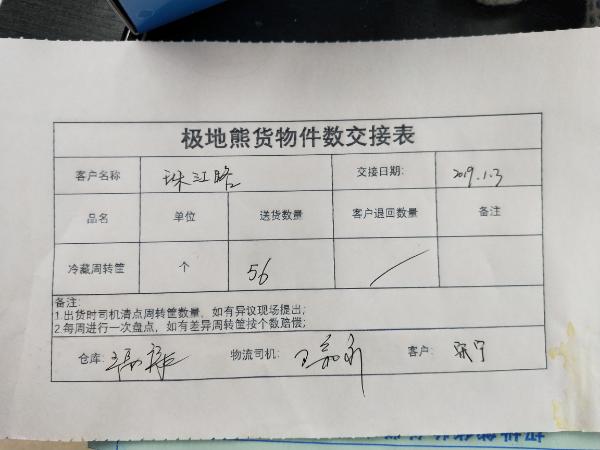 极地熊货物件数交接表
客户名称 珠江路 交接日期: 2019.1.3
品名 单位 送货数量 客户退回数量 备注
冷藏周转筐 个 56 /
备注:
1.出货时司机清点周转筐数量，如有异议现场提出;
2.每周进行一次盘点，如有差异周转筐按个数赔偿;
仓库: 物流司机: 客户: